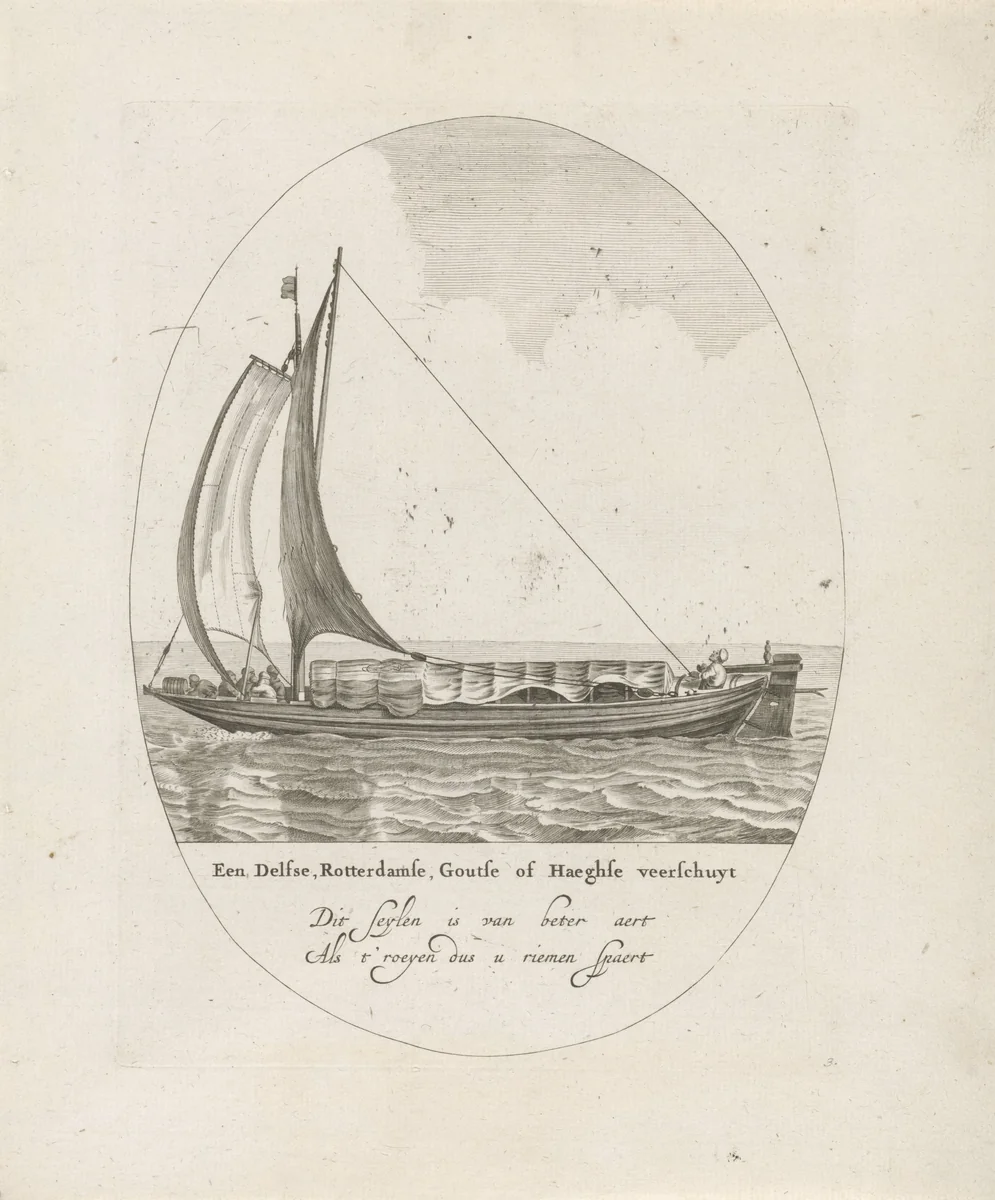 Een Delfse, Rotterdamſe, Goutſe of Haeghſe veerſchuyt
Dit ſeylen is van beter aert
Als t'roeyen dus u riemen ſpaert
3.